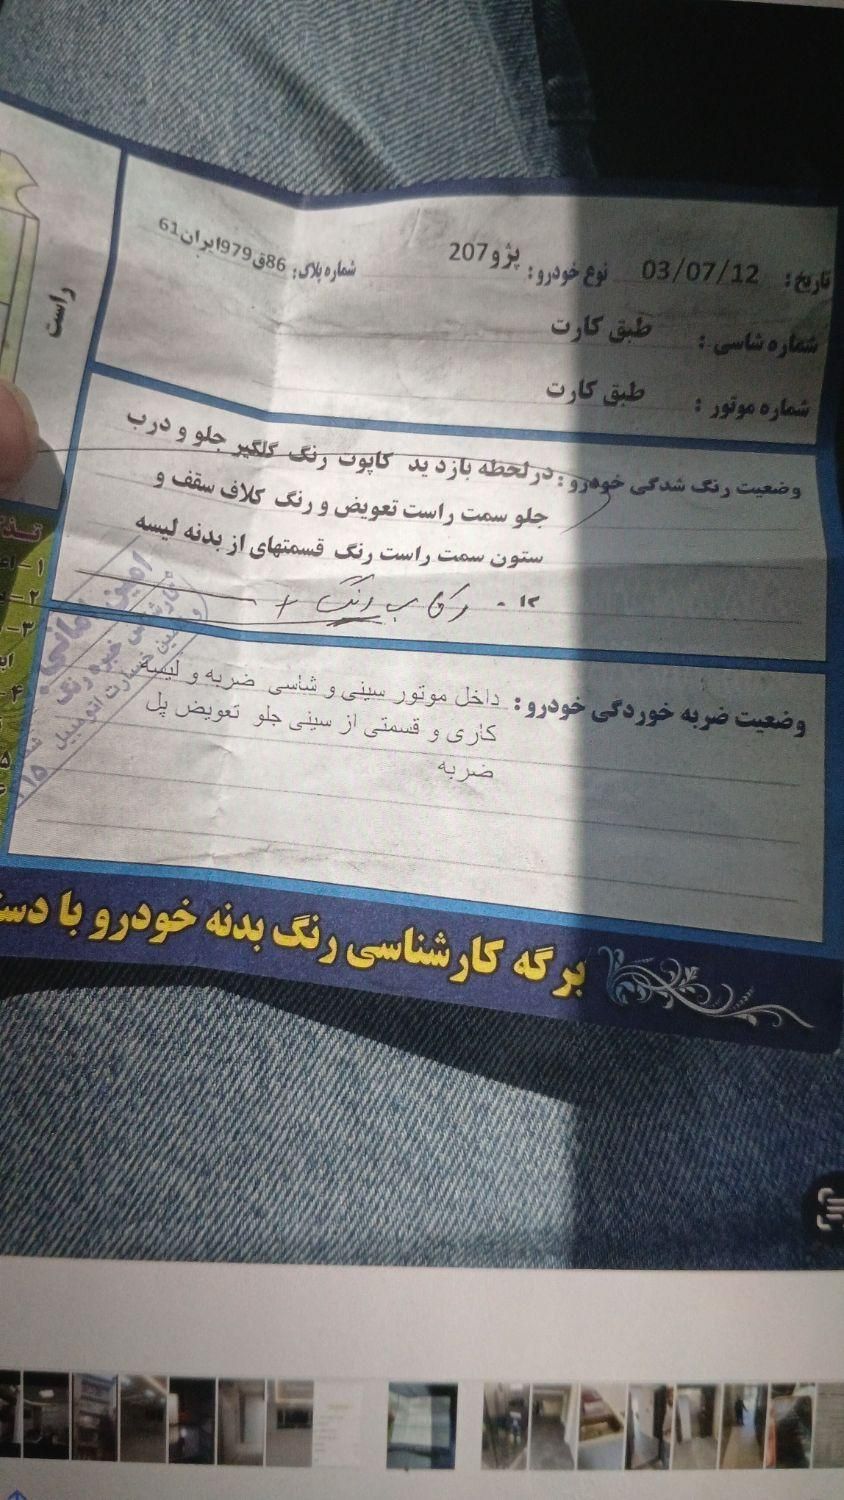 تاریخ: 03/07/12 نوع خودرو: پژو207 شماره پلاک: 86ق979ایران61
شماره شاسی: طبق کارت
شماره موتور: طبق کارت
راست
وضعیت رنگ شدگی خودرو: درلحظه بازدید کاپوت رنگ گلگیر جلو و درب
جلو سمت راست تعویض و رنگ کلاف سقف و
ستون سمت راست رنگ قسمتهای از بدنه لیسه
رکاب رنگ +
وضعیت ضربه خوردگی خودرو: داخل موتور سینی و شاسی ضربه و لیسه
کاری و قسمتی از سینی جلو تعویض پل
ضربه
کارشناس خبره رنگ
خسارت اتومبیل
۱-
۲-
۳-
۴-
۵
برگه کارشناسی رنگ بدنه خودرو با